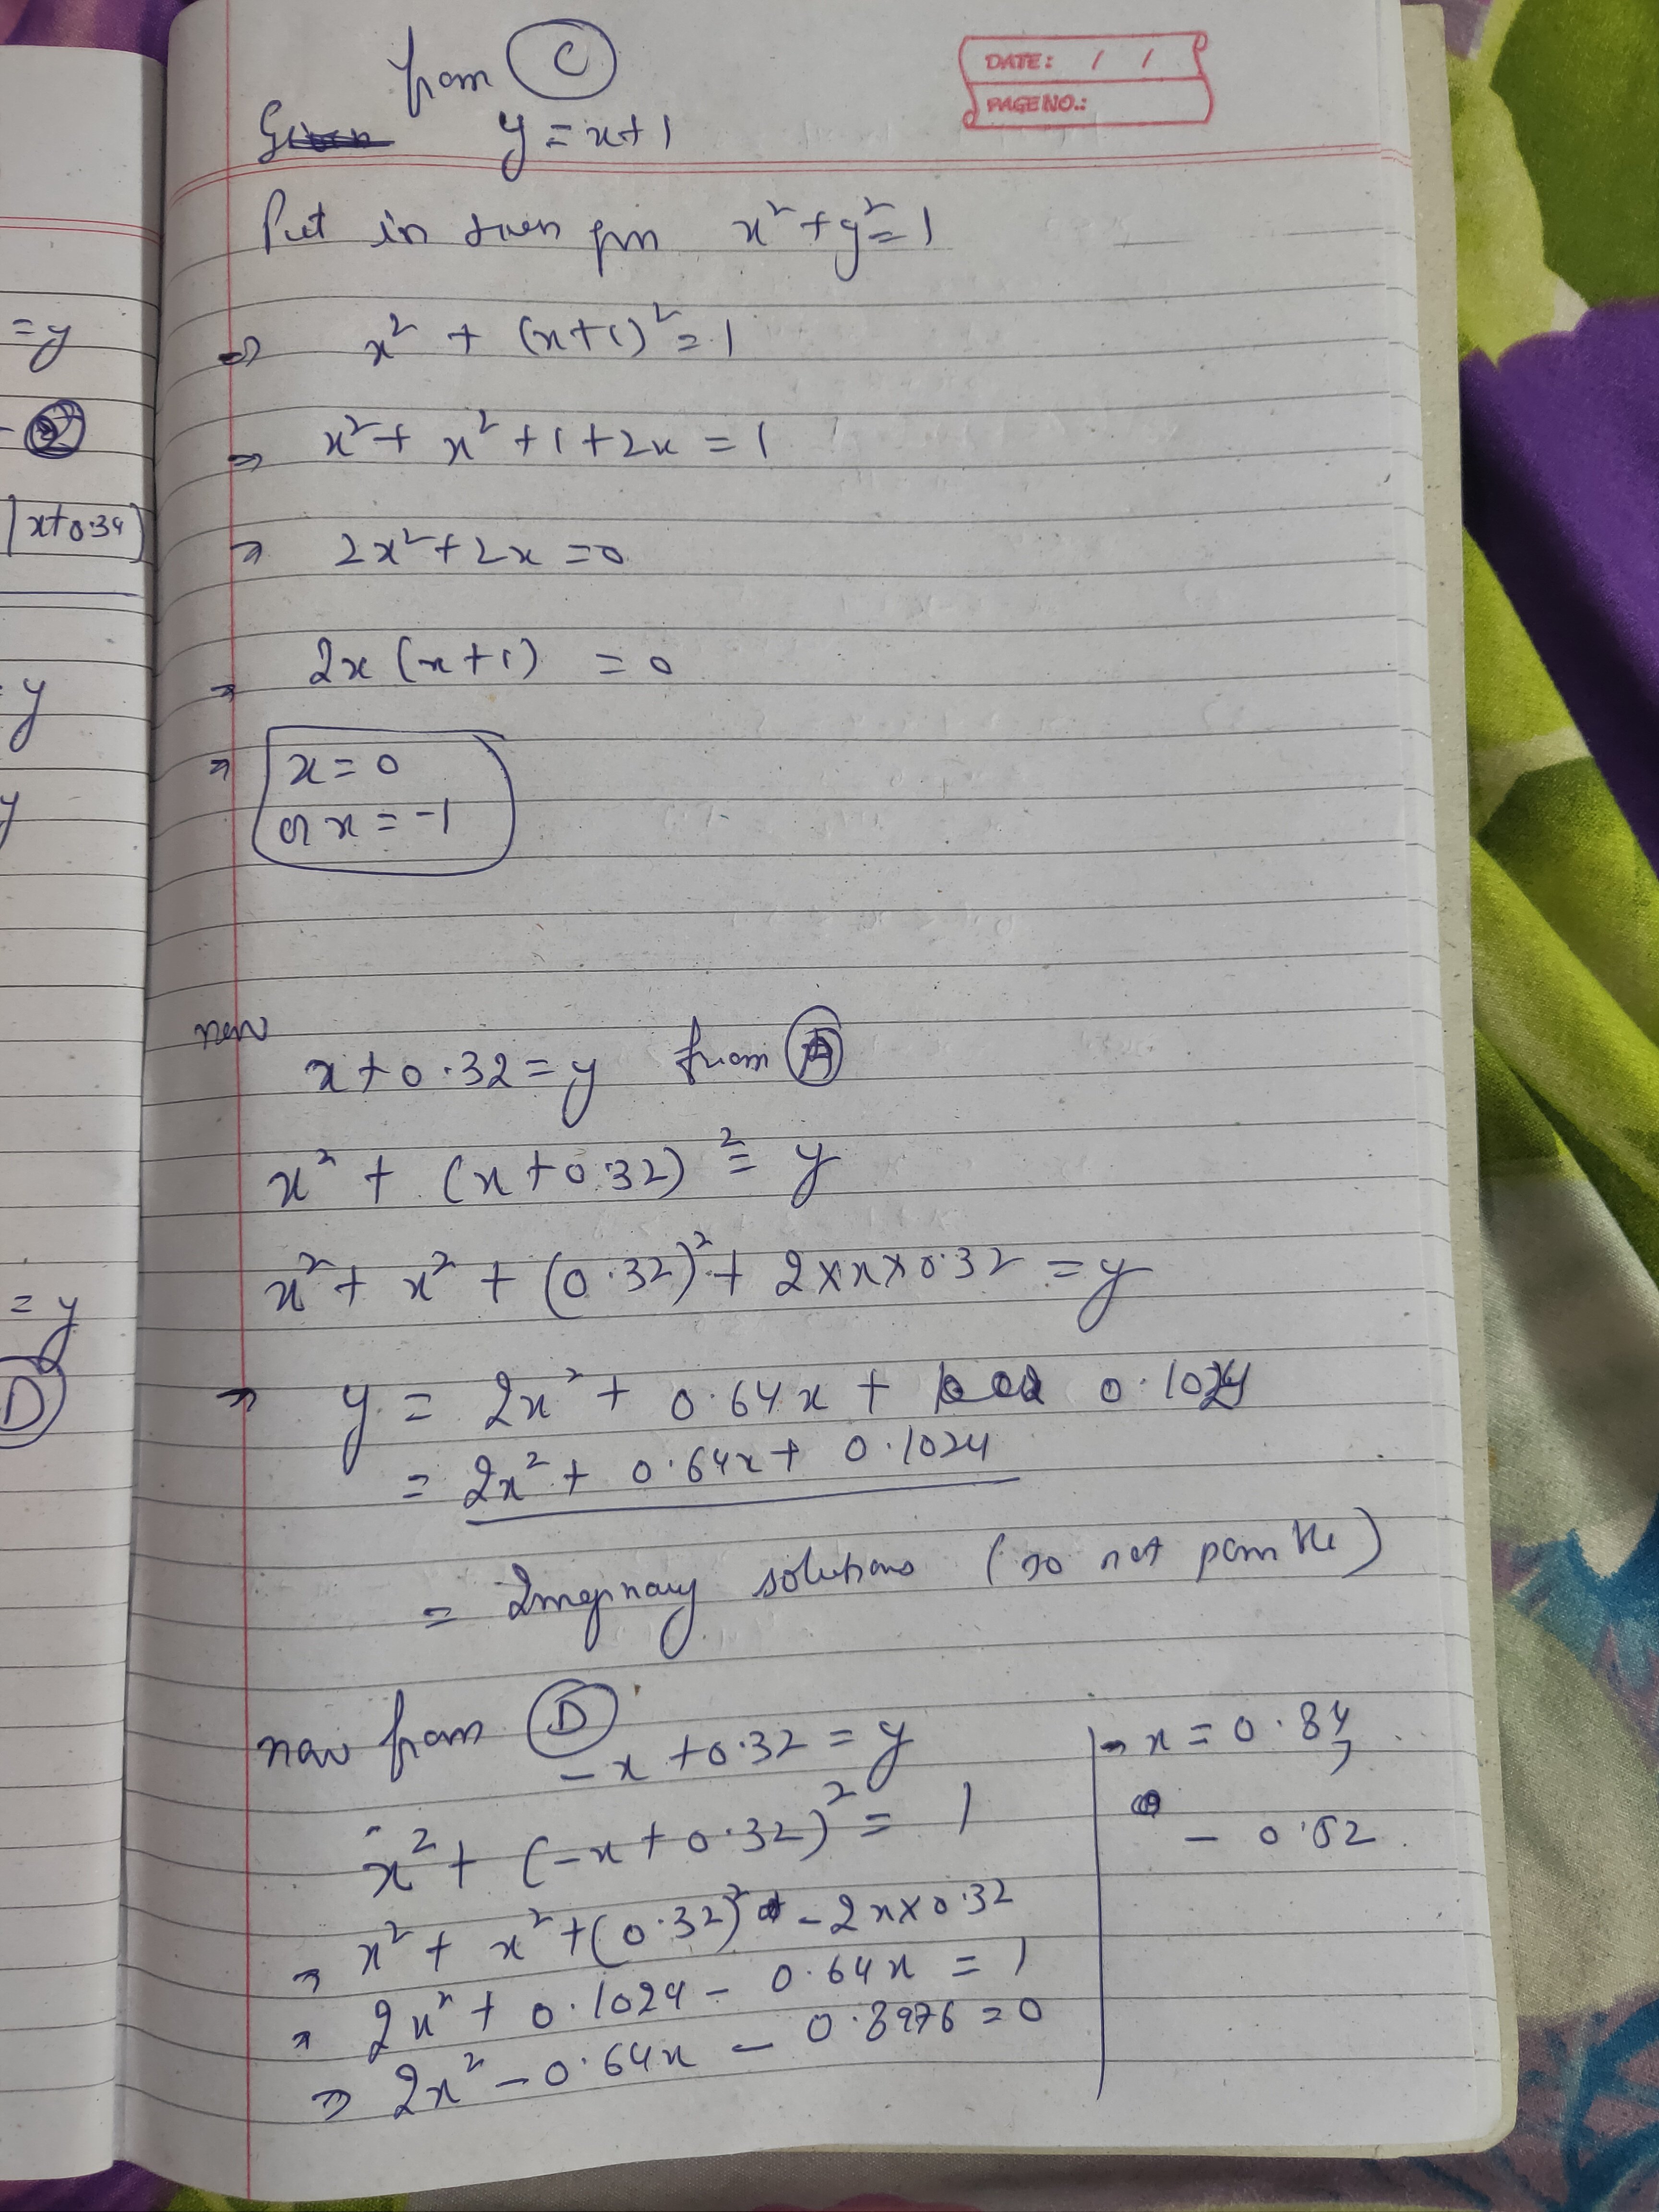 from C
DATE: / /
PAGE NO.:
Given y = x+1
Put in given x² + y² = 1
⇒ x² + (x+1)² = 1
⇒ x² + x² + 1 + 2x = 1
⇒ 2x² + 2x = 0
⇒ 2x (x+1) = 0
⇒ x = 0
or x = -1
now
x + 0.32 = y from A
x² + (x+0.32)² = y
x² + x² + (0.32)² + 2×x×0.32 = y
⇒ y = 2x² + 0.64x + 0.1024
= 2x² + 0.64x + 0.1024
= Imaginary solutions (so not possible)
now from D
-x + 0.32 = y
x² + (-x + 0.32)² = 1
⇒ x² + x² + (0.32)² - 2x×0.32
⇒ 2x² + 0.1024 - 0.64x = 1
⇒ 2x² - 0.64x - 0.8976 = 0
→ x = 0.84,
- 0.52.
= y
x+0.34
y
y
= y
D